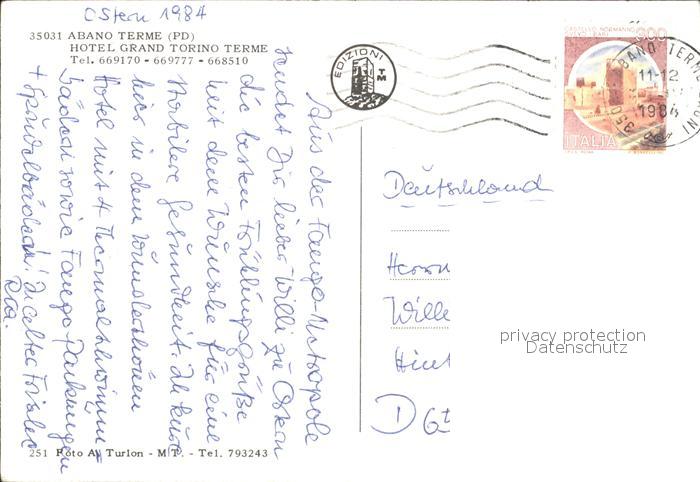 Ostern 1984
35031 ABANO TERME (PD)
HOTEL GRAND TORINO TERME
Tel. 669170 - 669777 - 668510
EDIZIONI
TM
CASTELLO NORMANNO
SVEVO - BARI
ITALIA
ABANO TERME
11-12
1984
Aus der Fango-Metropole
sendet Dir lieber Willi zu Ostern
die besten Frühlingsgrüße
mit dem Wunsche für eine
Gesundheit. Ich kure
hier in dem wunderschönen
Hotel mit 4 Thermalschwimm-
bädern sowie Fango-Packungen
+ Sprudelbädern!
251 Foto A. Turlon - M.T. - Tel. 793243
Deutschland
Herrn
Wille
Hint
D 6
privacy protection
Datenschutz